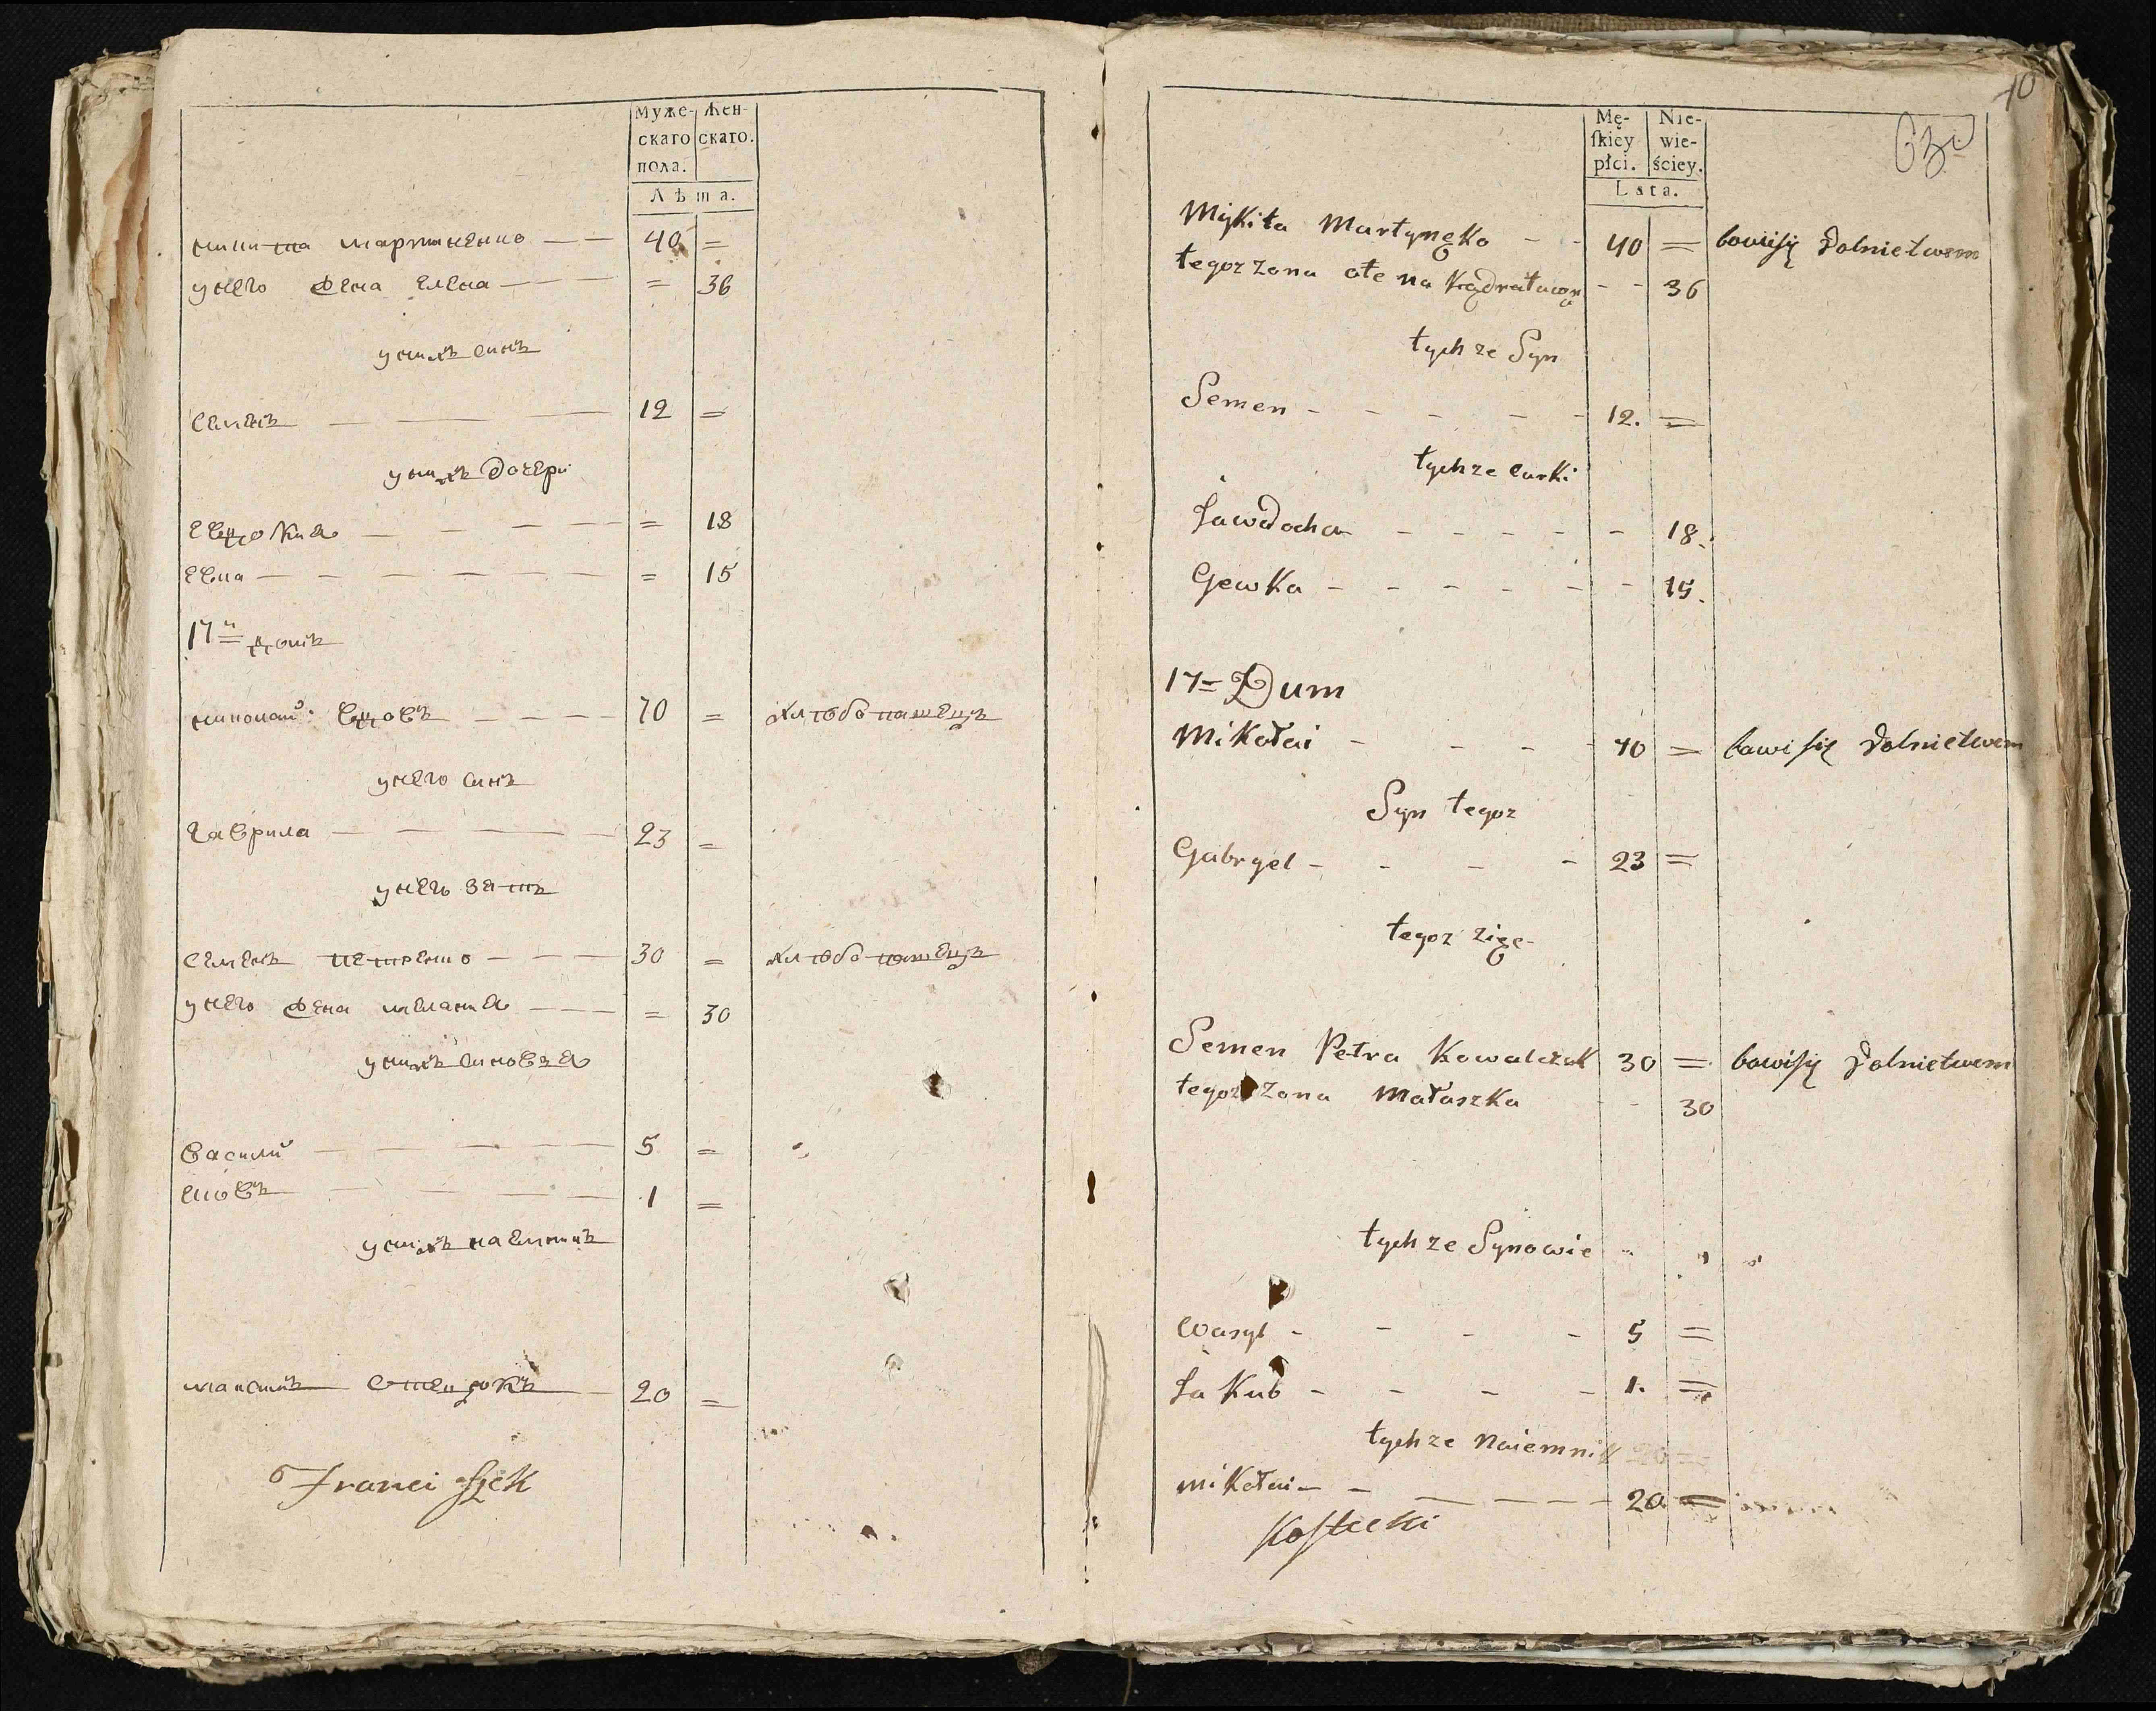 Муже-
скаго
пола.
Жен-
скаго.
Лѣта.
никита мартиненко — — 40 =
унего жена елена — — — = 36
унихъ синъ
семенъ — — — 12 =
унихъ дочери
евдокия — — — — = 18
евка — — — — — — = 15
17й домъ
николай вдовъ — — — — 70 = хлѣбопашецъ
унего синъ
гаврила — — — — 23 =
унего зять
семенъ петренко — — — 30 = хлѣбопашецъ
унего жена мелания — — — = 30
унихъ синовья
василй — — — — — 5 =
яковъ — — — — — 1 =
унихъ наемникъ
максимъ — 20 =
Franciszek
10
Mę-
skiey
płci.
Nie-
wie-
ściey.
Lata.
Mykita Martynęko - - 40 = bawi się Rolnictwem
tegoz zona ołena Kądratową - - 36
tychze Syn
Semen - - - - - 12. =
tychze curki
Jawdocha - - - - - - 18.
Gewka - - - - - - 15.
17= Dum
Mikołai - - - - 70 = bawi się Rolnictwem
Syn tegoz
Gabryel - - - - 23 =
tegoz zięc-
Semen Petra Kowalczuk 30 = bawi się Rolnictwem
tegoz zona Małaszka - - 30
tychze Synowie
Wasyl - - - - 5 =
Jakub - - - - 1. =
tychze Naiemnik
mikołai - - — - - - - 20 =
Kostecki